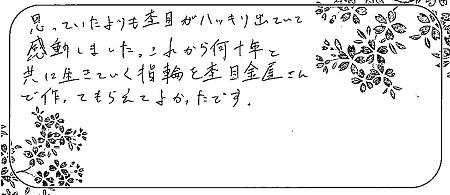 思っていたよりも杢目がハッキリ出ていて
感動しました。これから何十年と
共に生きていく指輪を杢目金屋さん
で作ってもらえてよかったです。